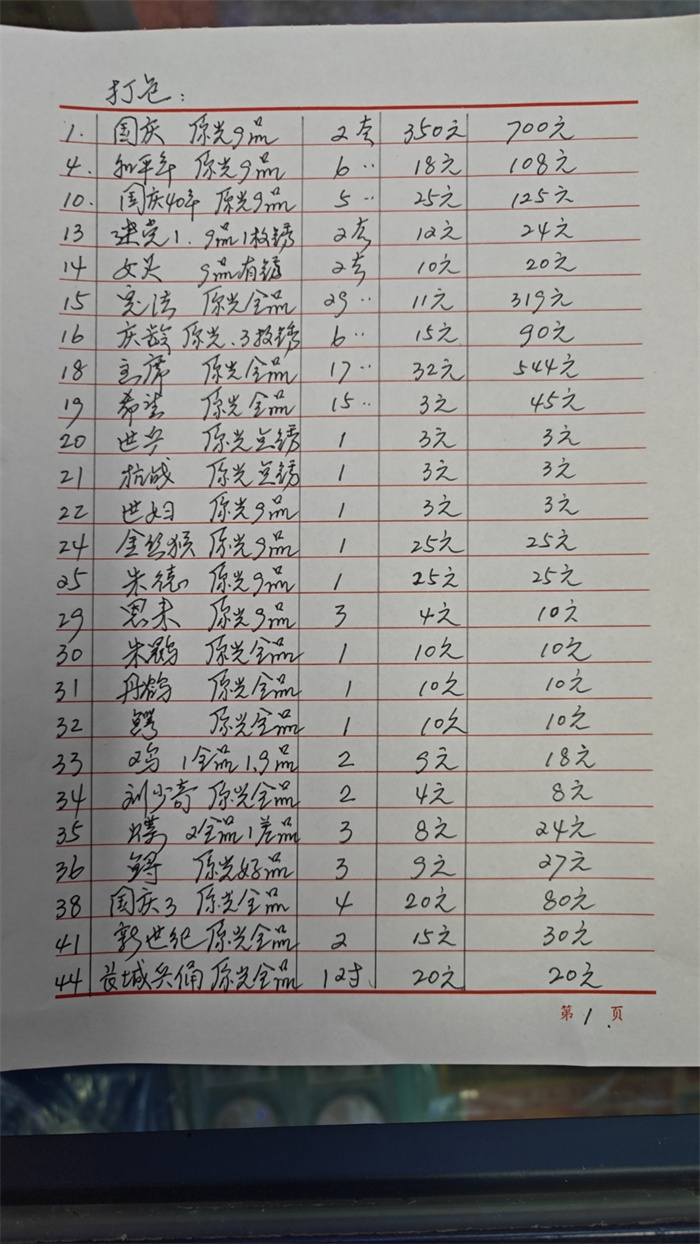 打包:
1. 国庆 原光9品 2套 350元 700元
4. 和平年 原光9品 6 ·· 18元 108元
10. 国庆40年 原光9品 5 ·· 25元 125元
13 建党1. 9品1枚锈 2套 12元 24元
14 女头 9品有锈 2套 10元 20元
15 宪法 原光全品 29 ·· 11元 319元
16 庆龄 原光.3枚锈 6 ·· 15元 90元
18 主席 原光全品 17 ·· 32元 544元
19 希望 原光全品 15 ·· 3元 45元
20 世乒 原光豆锈 1 3元 3元
21 抗战 原光豆锈 1 3元 3元
22 世妇 原光9品 1 3元 3元
24 金丝猴 原光9品 1 25元 25元
25 朱德 原光9品 1 25元 25元
29 恩来 原光9品 3 4元 10元
30 朱鹮 原光全品 1 10元 10元
31 丹鹤 原光全品 1 10元 10元
32 鳄 原光全品 1 10元 10元
33 鸡 1全品1.9品 2 9元 18元
34 刘少奇 原光全品 2 4元 8元
35 蝶 2全品1差品 3 8元 24元
36 鲟 原光好品 3 9元 27元
38 国庆3 原光全品 4 20元 80元
41 新世纪 原光全品 2 15元 30元
44 长城兵俑 原光全品 1对 20元 20元
第1页